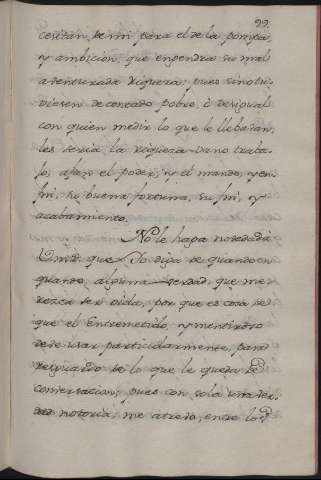 99.
cesitan de mi para el de la pompa,
y ambicion, que engendra su mal
aventurada riqueza; pues sino tu
viesen de contado pobre, ò desigual
con quien medir lo que le lleban,
les seria la riqueza vano traba-
lo, afan el poder, y el mando, y en
fin, su buena fortuna, su fin, y
acabamiento.
No le haga novedad à
Vmd. que Yo diga de quando en
quando alguna verdad que me-
rezca ser oida, por que es cosa de
que el Entremetido, y mentiroso
debe usar particularmente, para
resguardo de lo que le queda de
conversacion; pues con sola una ver-
dad notoria, me atrevo, entre los